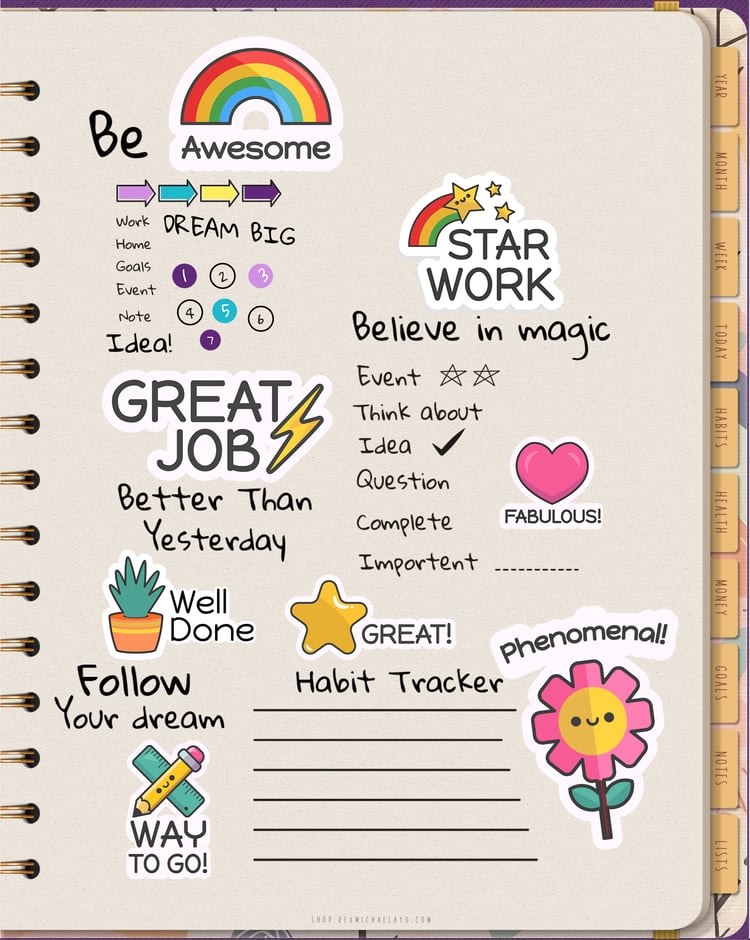 Be
Awesome
DREAM BIG
Work
Home
Goals
Event
Note
Idea!
1 2 3
4 5 6
7
STAR
WORK
Believe in magic
Event
Think about
Idea
Question
Complete
Importent
FABULOUS!
GREAT
JOB
Better Than
Yesterday
Well
Done
GREAT!
Phenomenal!
Follow
Your dream
Habit Tracker
WAY
TO GO!
YEAR
MONTH
WEEK
TODAY
HABITS
HEALTH
MONEY
GOALS
NOTES
LISTS